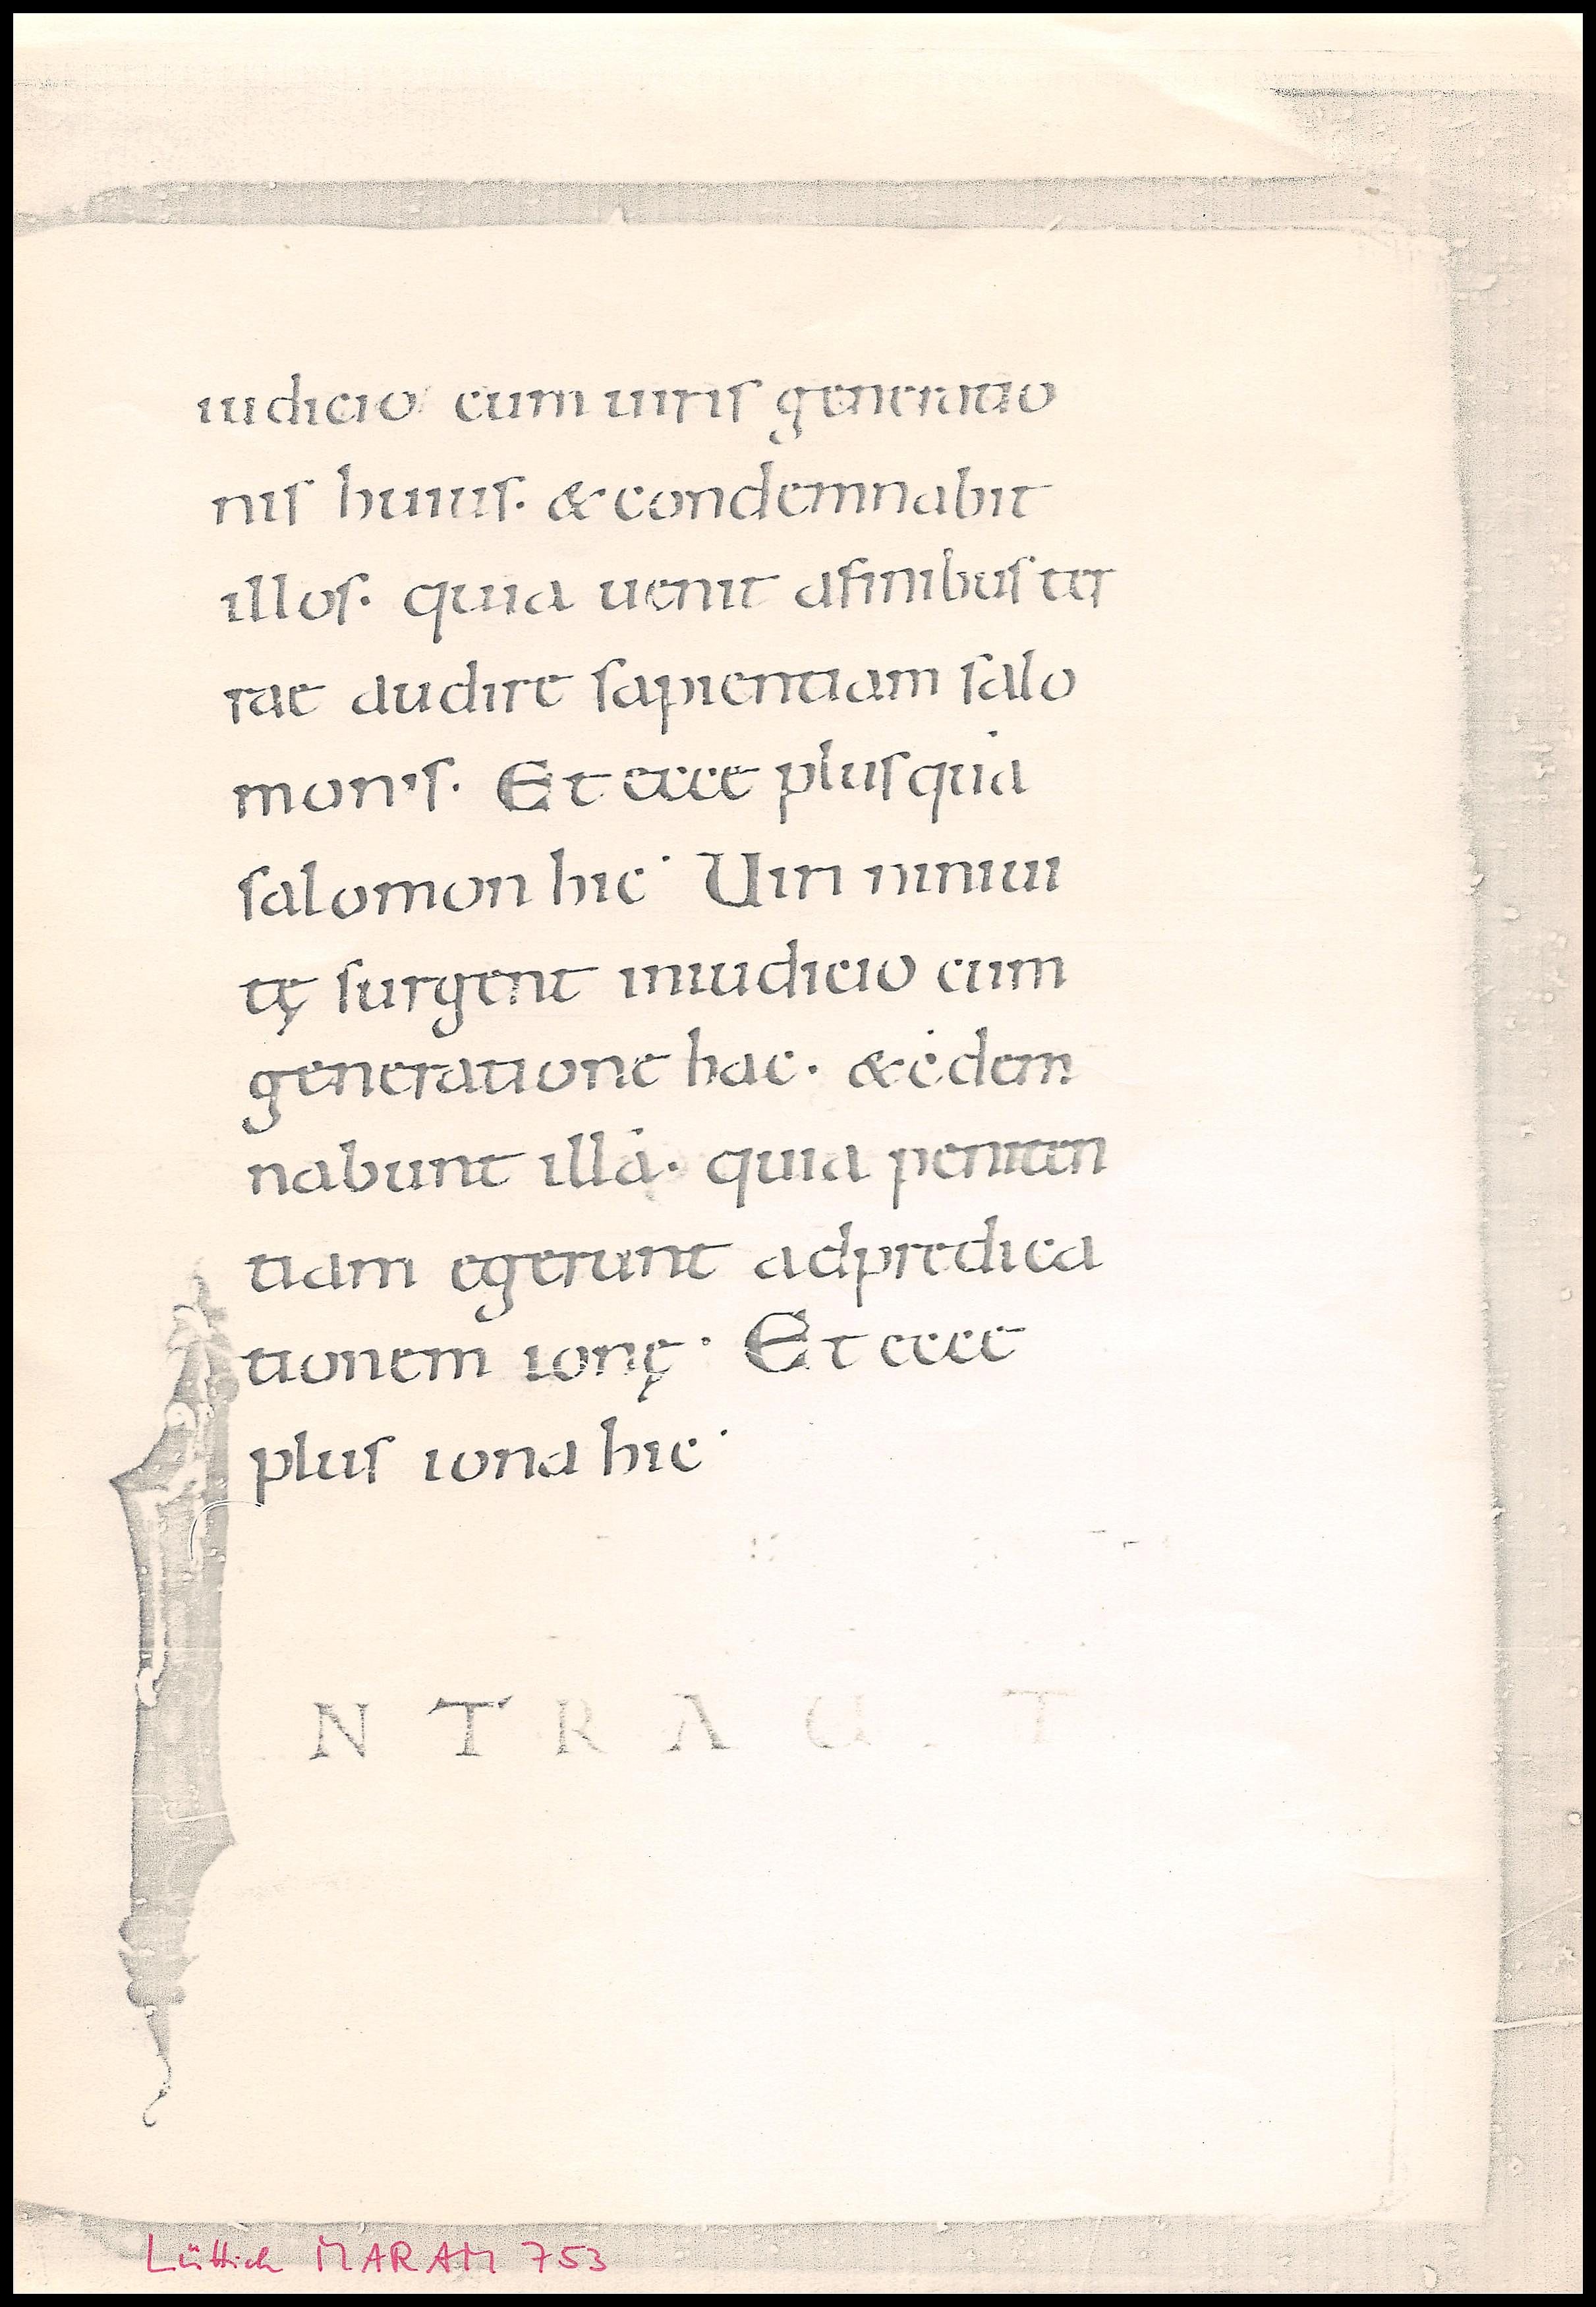 iudicio cum uiris generatio
nis huius. & condemnabit
illos. quia uenit afinibus ter
rae audire sapientiam salo
monis. Et ecce plusquā
salomon hic. Uiri niniui
tę surgent iniudicio cum
generatione hac. & cōdem
nabunt illā. quia peniten
tiam egerunt adpredica
tionem ionę. Et ecce
plus iona hic.
N T R A U T
Lüttich MARAM 753